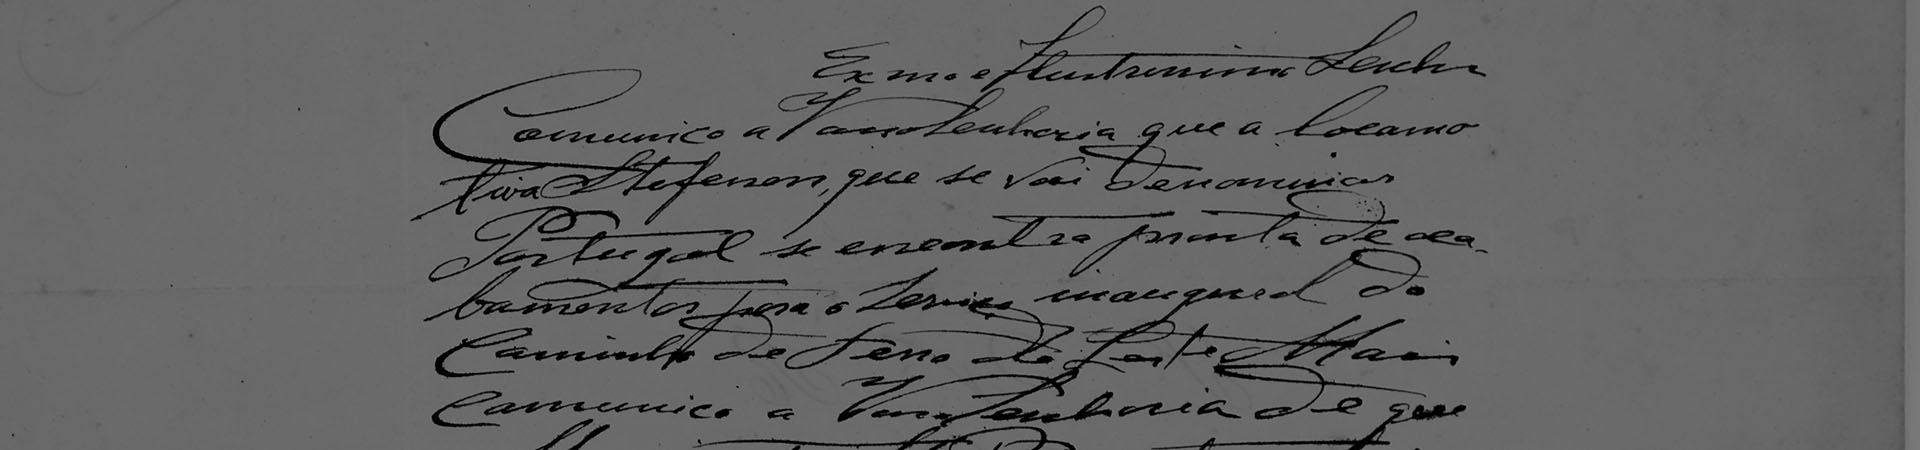 Exmo e Ilustrissimo Senhor
Comunico a Vossa Senhoria que a locamo
tiva Stefenson, que se vai denominar
Portugal se encontra pronta de aca-
bamentos para o serviço inaugural do
Caminho de Ferro do Leste Mais
Comunico a Vossa Senhoria de que